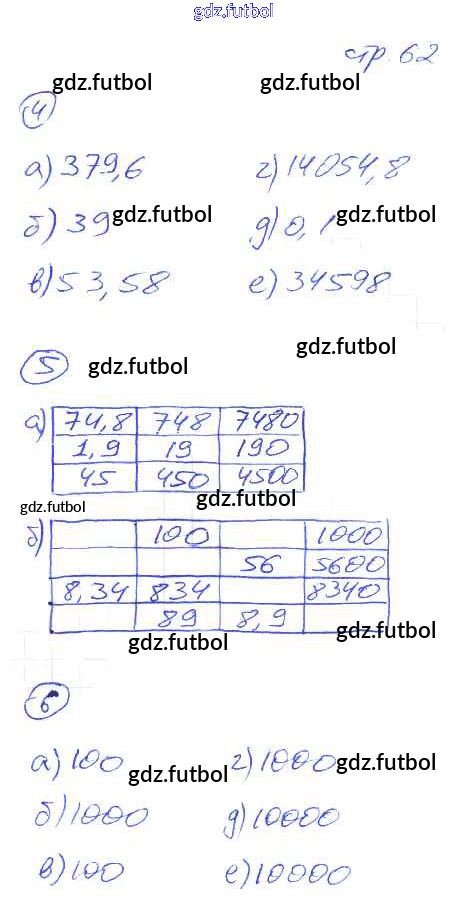 gdz.futbol
стр. 62
gdz.futbol gdz.futbol
4
а) 379,6 г) 14054,8
б) 39 gdz.futbol д) 0,1 gdz.futbol
в) 53,58 е) 34598
gdz.futbol
5 gdz.futbol
а) 74,8 748 7480
1,9 19 190
45 450 4500
gdz.futbol gdz.futbol
б) 100 1000
56 5600
8,34 834 8340
89 8,9
gdz.futbol gdz.futbol
6
а) 100 gdz.futbol г) 1000 gdz.futbol
б) 1000 д) 10000
в) 100 е) 10000